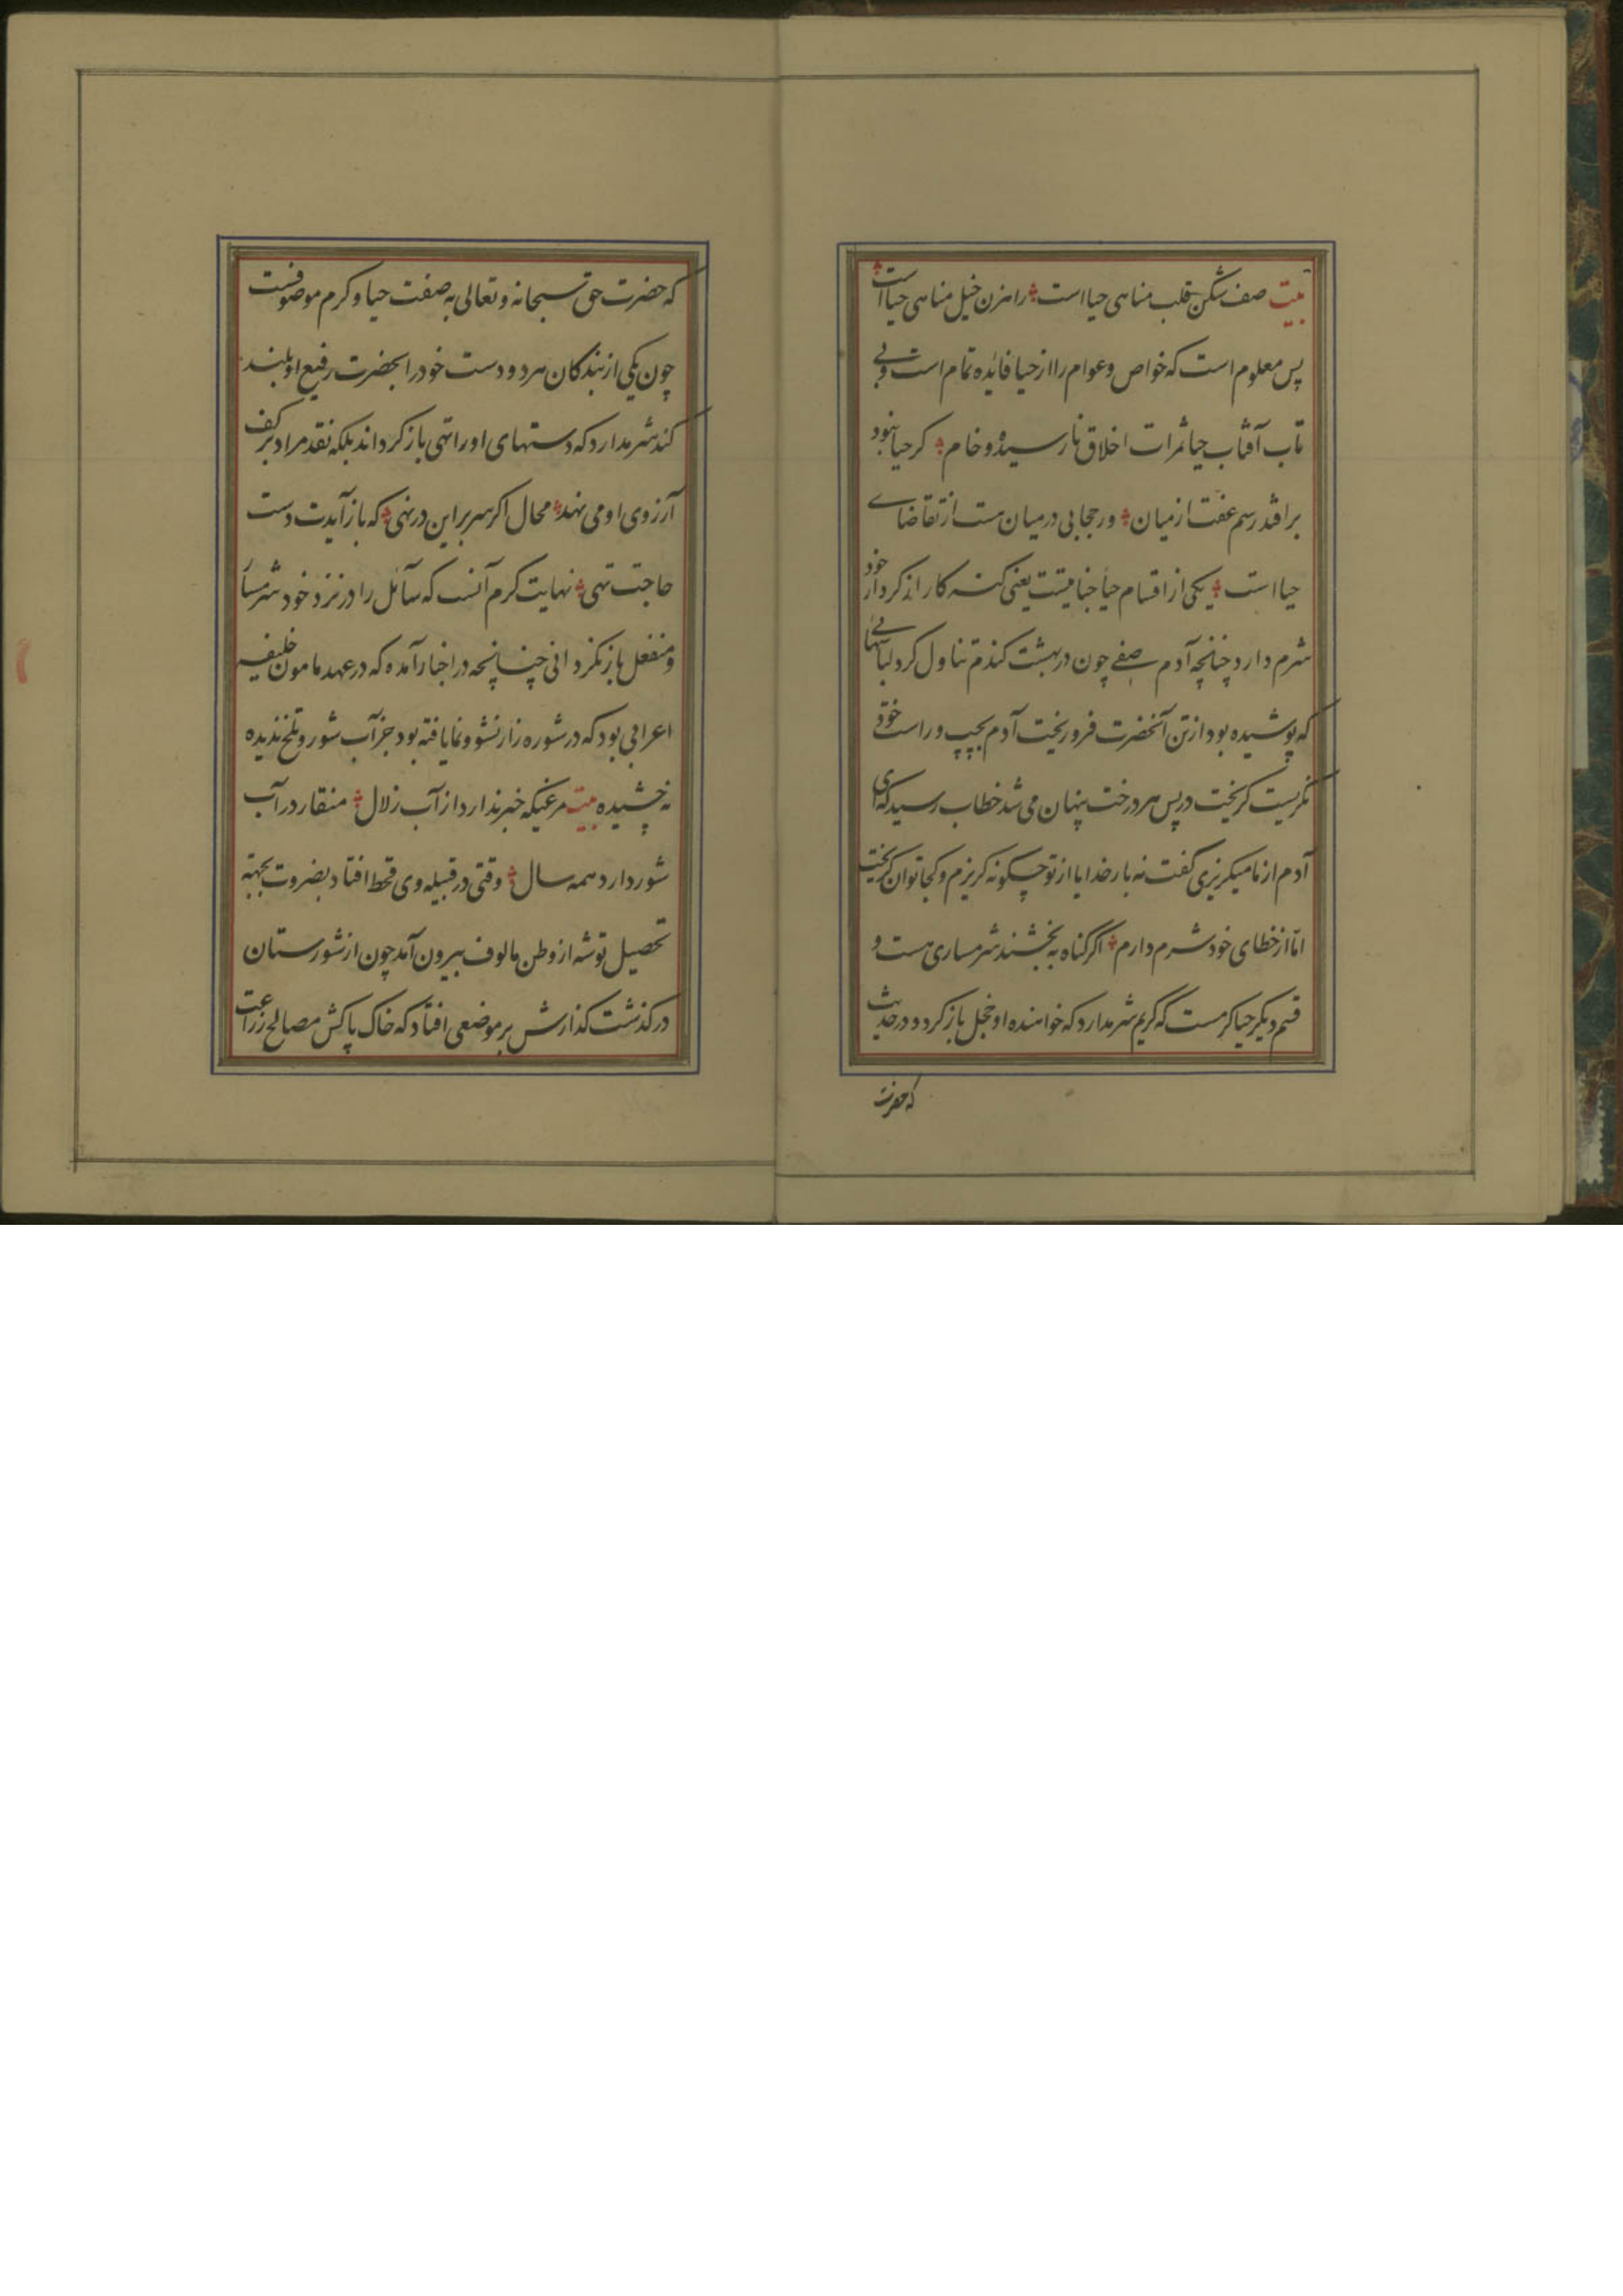 بیت صف شکن قلب مناهی حیا است راهزن خیل مناهی حیا است
پس معلوم است که خواص و عوام را از حیا فائده تمام است و بی
تاب آفتاب حیا ثمرات اخلاق نارسیده و خام کر حیا نبود
برافتد رسم عفت از میان ور حجابی در میان هست از تقاضای
حیا است یکی از اقسام حیا جنایتست یعنی کنه کار از کردار خود
شرم دارد چنانچه آدم صفی چون در بهشت کندم تناول کرد لباسهائی
که پوشیده بود از تن آنحضرت فرو ریخت آدم بچپ و راست
نکریست کریخت در پس هر درخت پنهان می شد خطاب رسید که ای
آدم از ما میکریزی کفت نه بار خدایا از تو چکونه کریزم و کجا توان کریخت
اما از خطای خود شرم دارم اگر گناه به بخشند شرمساری هست و
قسم دیکر حیا کرمست که گریم شرم دارد که خواهنده او خجل باز کردد و در حدیث
که حضرت
که حضرت حق سبحانه و تعالی به صفت حیا و کرم موصوفست
چون یکی از بندکان هر دو دست خود را بحضرت رفیع او بلند
کند شرم دارد که دستهای او را تهی باز کرداند بلکه نقد مراد بر کف
آرزوی او می نهد محال اکر سر براین در نهی که باز آیدت دست
حاجت تهی نهایت کرم آنست که سائل را در نزد خود شرمسار
و منفعل باز نکردانی چنانچه در اخبار آمده که در عهد مامون خلیفه
اعرابی بود که در شوره زار نشو و نما یافته بود جز آب شور و تلخ ندیده
نه چشیده بیت مرغیکه خبر ندارد از آب زلال منقار در آب
شور دارد همه سال وقتی در قبیله وی قحط افتاد بضروت بجهة
تحصیل توشه از وطن مالوف بیرون آمد چون از شورستان
درکذشت کذارش بر موضعی افتاد که خاک پاکش مصالح زراعت